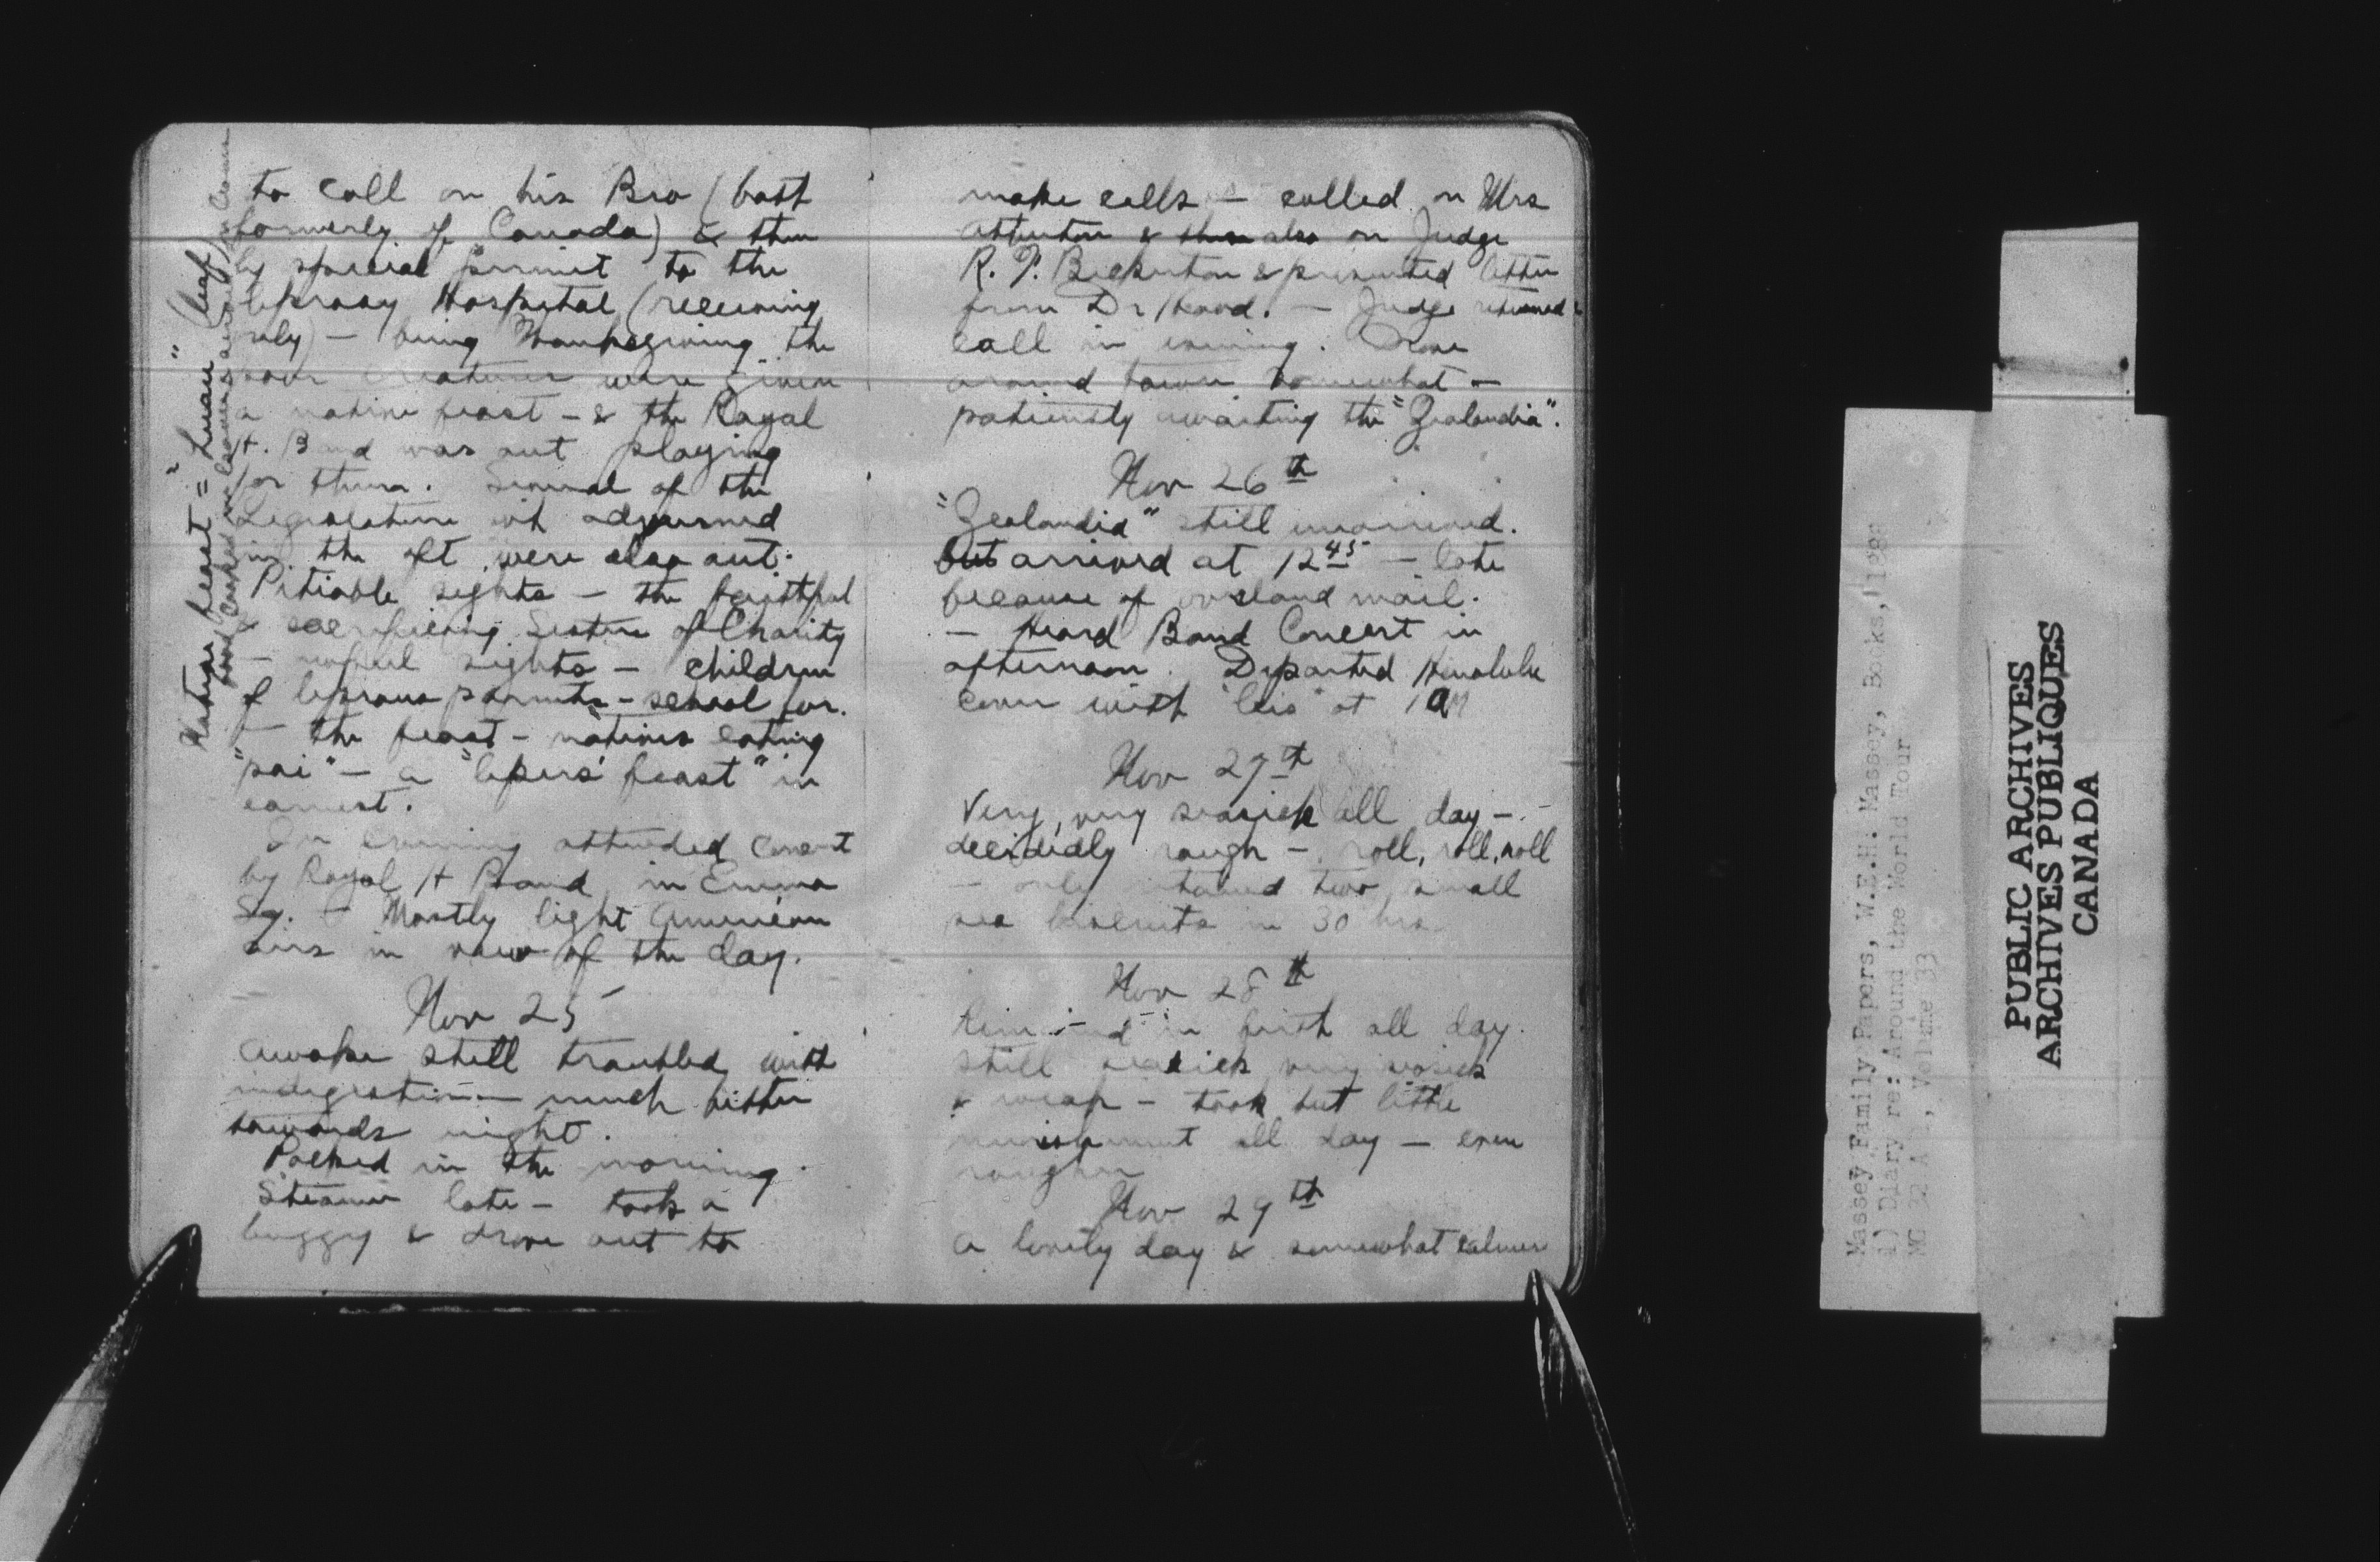 to call on his Bro (both
formerly of Canada) & then
by special permit to the
leprosy Hospital (receiving
only) — being Thanksgiving the
poor creatures were given
a native feast — & the Royal
H. Band was out playing
for them. Several of the
Legislature wh adjourned
in the aft were also out.
Pitiable sights — the faithful
& sacrificing Sisters of Charity
— sights — children
of leprous parents — school for.
— the feast — natives eating
"poi" — a "lepers' feast" in
earnest.
In evening attended concert
by Royal H Band in Emma
Sq. — Mostly light American
airs in view of the day.
Nov 25
Awoke still troubled with
indigestion — much better
towards night.
Packed in the morning.
Steamer late — took a
buggy & drove out to
Native feast = "Luau" (leaf)
food cooked in leaves
make calls — called on Mrs
Atherton & also on Judge
R. F. Bickerton & presented letter
from Dr Hood. — Judge returned
call in evening. Drove
around town somewhat —
patiently awaiting the "Zealandia".
Nov 26th
"Zealandia" still unarrived.
but arrived at 12 45 — late
because of overland mail.
— Heard Band Concert in
afternoon. Departed Honolulu
cover with "leis" at 1 AM
Nov 27th
Very, very seasick all day —
decidedly rough — roll, roll, roll
— only retained two small
sea biscuits in 30 hrs.
Nov 28th
Remained in berth all day.
still seasick very
& weak — took but little
nourishment all day — even
rougher
Nov 29th
A lovely day & somewhat calmer
Massey Family Papers, W.E.H. Massey, Books,
1) Diary re: Around the World Tour
MG 32 A 1, Volume 33
PUBLIC ARCHIVES
ARCHIVES PUBLIQUES
CANADA